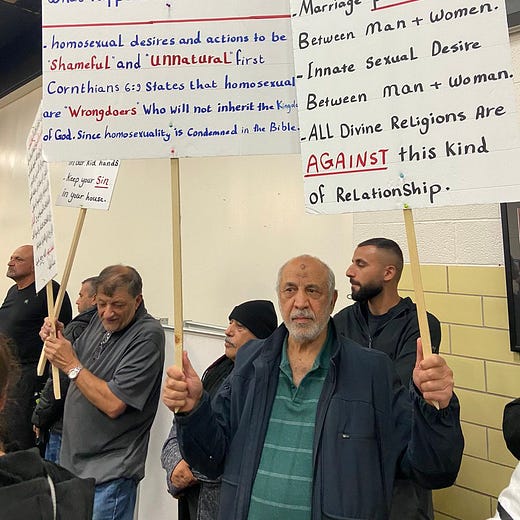 - homosexual desires and actions to be
"Shameful" and "unnatural" first
Cornthians 6:9 States that homosexual
are "Wrongdoers" Who will not inherit the Kingdo
of God. Since homosexuality is Condemned in the Bible.
- Marriage
Between Man + Women.
- Innate Sexual Desire
Between Man + Woman.
- ALL Divine Religions Are
AGAINST this kind
of Relationship.
in our kid hands
- Keep your Sin
in your house.